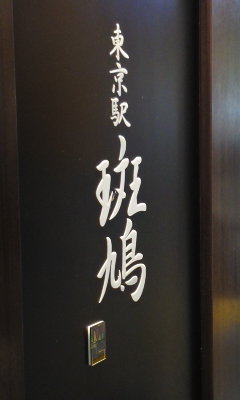 東京駅
斑鳩